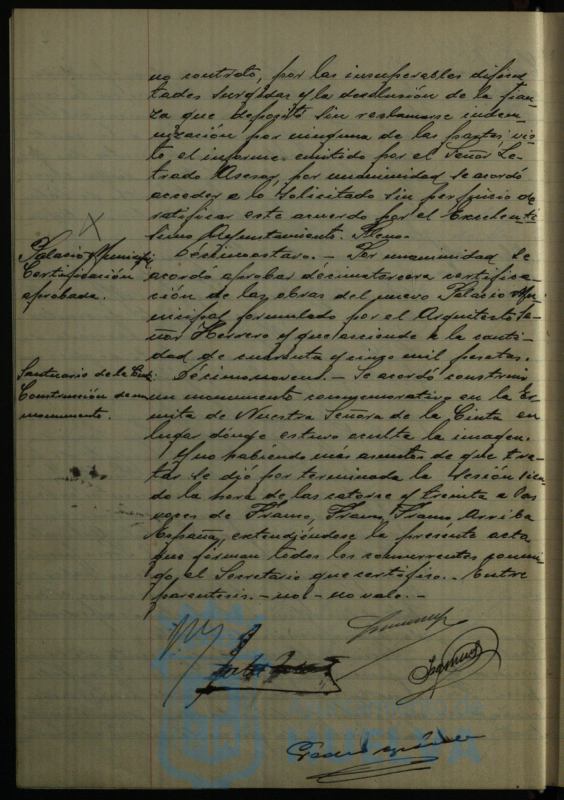 no contrato, por las insuperables dificul
tades surgidas y la devolución de la fian
za que depositó sin reclamarse indem-
nización por ninguna de las partes, vis
to, el informe emitido por el Señor Le-
trado Asesor, por unanimidad se acordó
acceder a lo solicitado sin perjuicio de
ratificar este acuerdo por el Excelentí
simo Ayuntamiento. Pleno.
Palacio Municipal
Certificación
aprobada.
Décimoctavo. - Por unanimidad se
acordó aprobar decimatercera certifica-
ción de las obras del nuevo Palacio Mu-
nicipal formulado por el Arquitecto Se-
ñor Herrero y que asciende a la canti-
dad de cuarenta y cinco mil pesetas.
Santuario de la Cinta
Construcción de un
monumento.
Décimonoveno. - Se acordó construir
un monumento conmemorativo en la Er
mita de Nuestra Señora de la Cinta en
lugar donde estuvo oculta la imagen.
Y no habiendo más asuntos de que tra-
tar se dió por terminada la sesión sien-
do la hora de las catorce y treinta a las
voces de Franco, Franco, Franco, Arriba
España, extendiéndose la presente acta
que firman todos los concurrentes conmi
go, el Secretario que certifico. - Entre
parentesis. - no - no vale. -
Ayuntamiento de
HUELVA